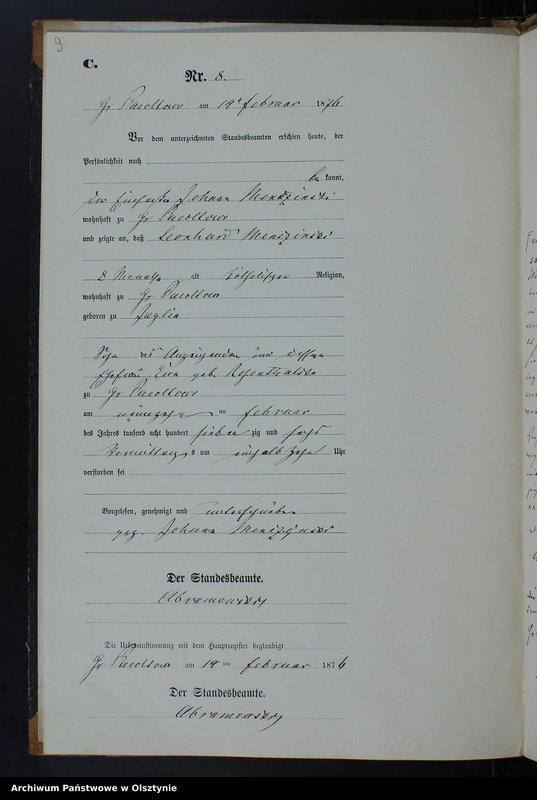 9
C.
Nr. 8.
Gr Pacoltowo am 19t Februar 1876
Vor dem unterzeichneten Standesbeamten erschien heute, der
Persönlichkeit nach
be kannt,
der Johann Menczinski
wohnhaft zu Gr Pacoltowo
und zeigte an, daß Leonhard Menczinski
8 Monathe alt katholischer Religion,
wohnhaft zu Gr Pacoltowo
geboren zu
Sohn des Anzeigenden und dessen
Ehefrau Eva geb.
zu Gr Pacoltowo
am neunzehn ten Februar
des Jahres tausend acht hundert sieben zig und sechs
Vormittags um einhalb zehn Uhr
verstorben sei
Vorgelesen, genehmigt und unterschrieben
gez. Johann Menczinski
Der Standesbeamte.
Abramowsky
Die Uebereinstimmung mit dem Hauptregister beglaubigt
Gr Pacoltowo am 19 ten Februar 1876
Der Standesbeamte.
Abramowsky
Archiwum Państwowe w Olsztynie